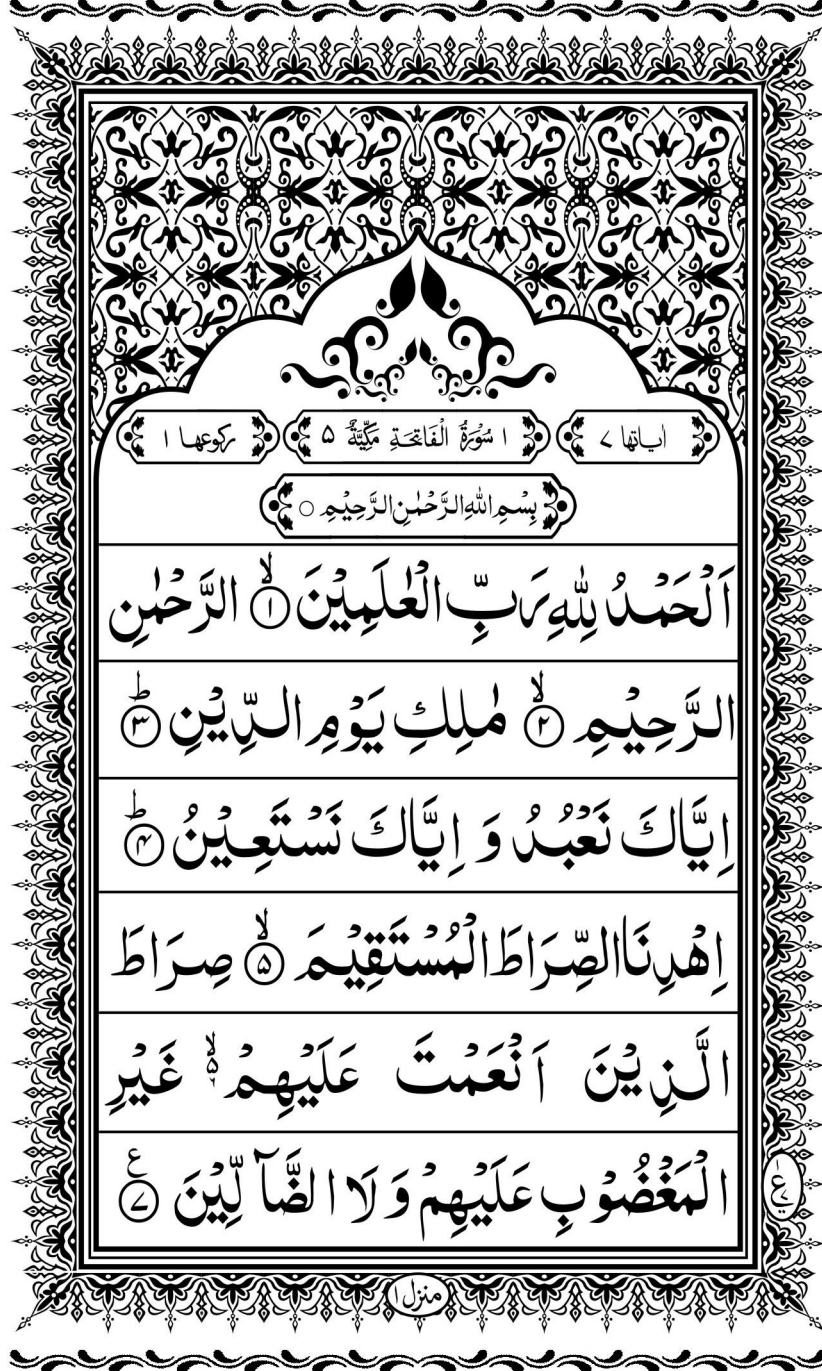 اٰیاتها ۷
۱ سُوْرَةُ الْفَاتِحَةِ مَكِّيَّةٌ ۵
رکوعها ۱
بِسْمِ اللّٰهِ الرَّحْمٰنِ الرَّحِيْمِ ○
اَلْحَمْدُ لِلّٰهِ رَبِّ الْعٰلَمِيْنَ ۙ﴿۱﴾ الرَّحْمٰنِ
الرَّحِيْمِ ۙ﴿۲﴾ مٰلِكِ يَوْمِ الدِّيْنِ ؕ﴿۳﴾
اِيَّاكَ نَعْبُدُ وَ اِيَّاكَ نَسْتَعِيْنُ ؕ﴿۴﴾
اِهْدِنَا الصِّرَاطَ الْمُسْتَقِيْمَ ۙ﴿۵﴾ صِرَاطَ
الَّذِيْنَ اَنْعَمْتَ عَلَيْهِمْ ۙ۵ غَيْرِ
الْمَغْضُوْبِ عَلَيْهِمْ وَ لَا الضَّآلِّيْنَ ﴿۷﴾ ع
منزل ۱